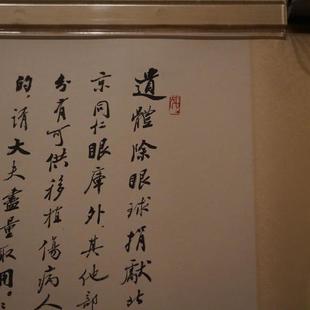 遺體除眼球捐獻北
京同仁眼庫外，其他部
分有可供移植，傷病人
的，請大夫盡量取用。